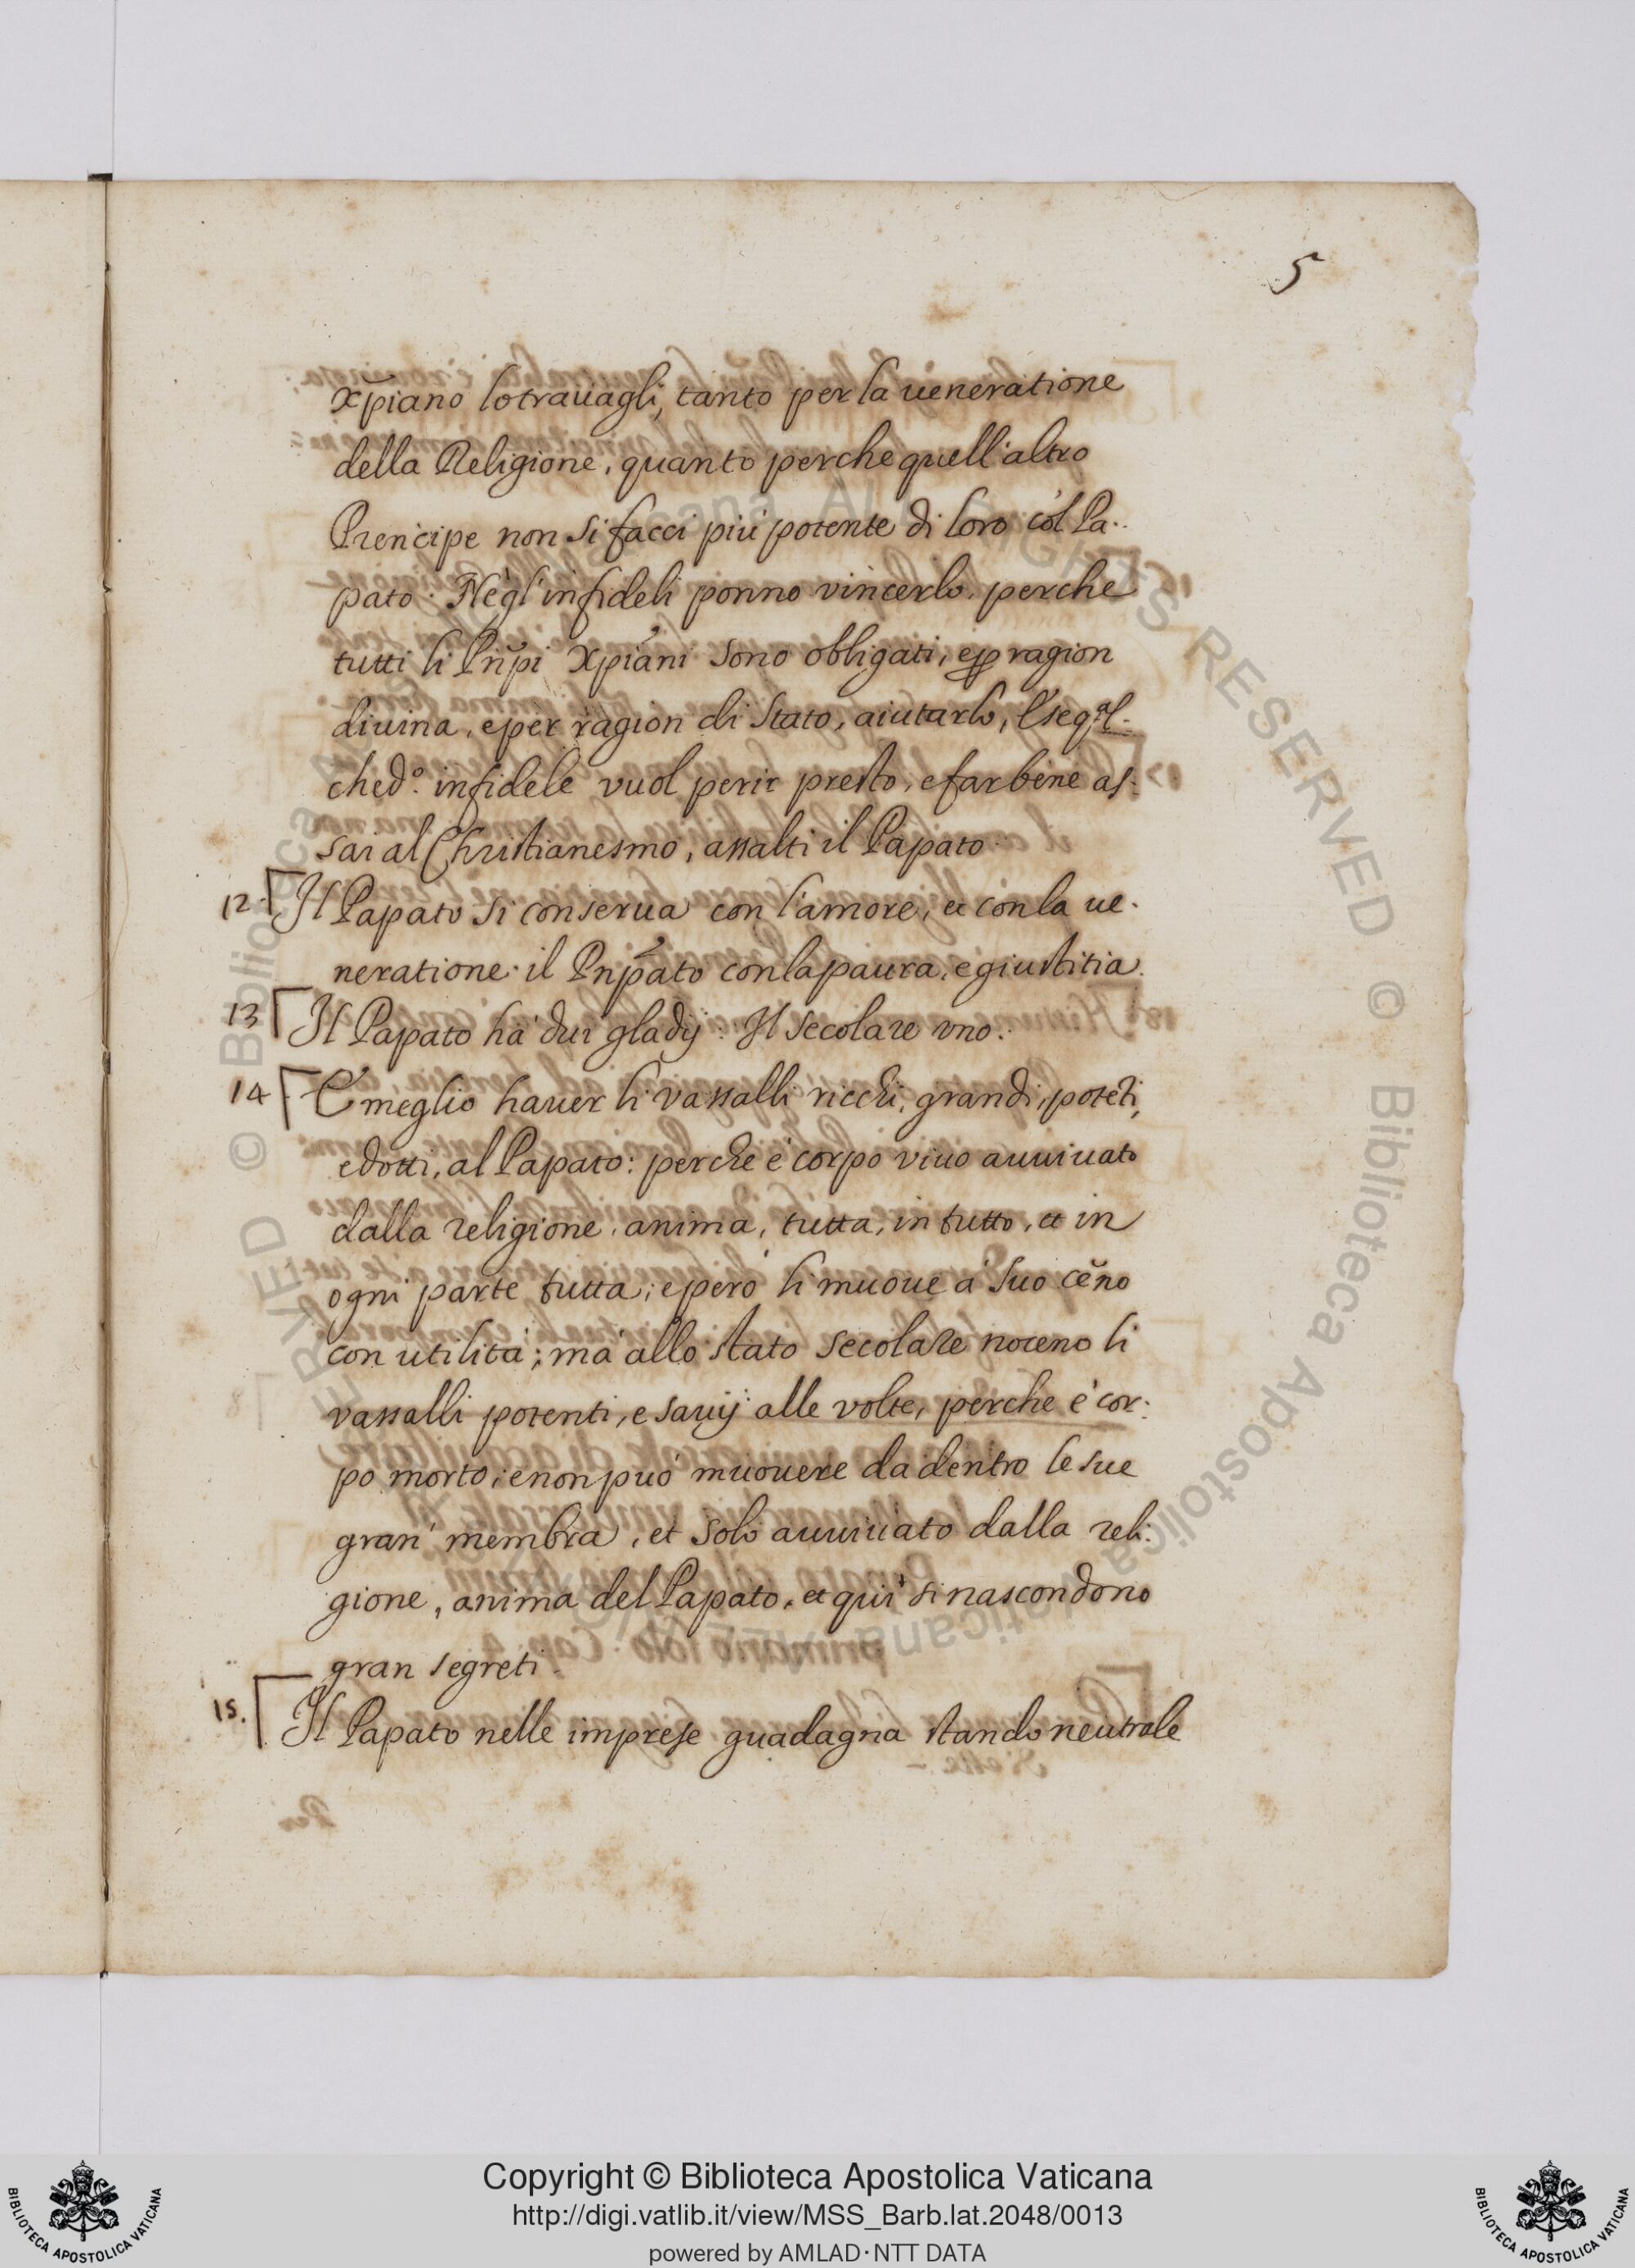 5
Xp̃iano lo trauagli, tanto per la ueneratione
della Religione, quanto perche quell'altro
Prencipe non si facci più potente di loro col Pa-
pato. Nè gl'infideli ponno vincerlo, perche
tutti li Prñpi Xp̃iani sono obligati, e ꝑ ragion
diuina, e per ragion di Stato, aiutarlo, E se q.al-
che d.o infidele vuol perir presto, e far bene as-
sai al Christianesmo, assalti il Papato.
12. Il Papato si conserua con l'amore, et con la ue-
neratione. il Prñpato con la paura, e giustitia.
13 Il Papato hà dui gladij: Il secolare vno.
14 E' meglio hauer li vassalli ricchi, grandi, potẽti,
e dotti, al Papato: perche è corpo viuo auuiuato
dalla religione, anima, tutta, in tutto, et in
ogni parte tutta; e però li muoue à suo cẽno
con utilità; mà allo stato secolare noceno li
vassalli potenti, e sauij alle volte, perche è cor-
po morto, e non può muouere da dentro le sue
gran membra, et solo auuiuato dalla reli-
gione, anima del Papato, et quì si nascondono
gran segreti.
15. Il Papato nelle imprese guadagna stando neutrale
© Biblioteca Apostolica Vaticana
Copyright © Biblioteca Apostolica Vaticana
http://digi.vatlib.it/view/MSS_Barb.lat.2048/0013
powered by AMLAD·NTT DATA
BIBLIOTECA APOSTOLICA VATICANA
BIBLIOTECA APOSTOLICA VATICANA